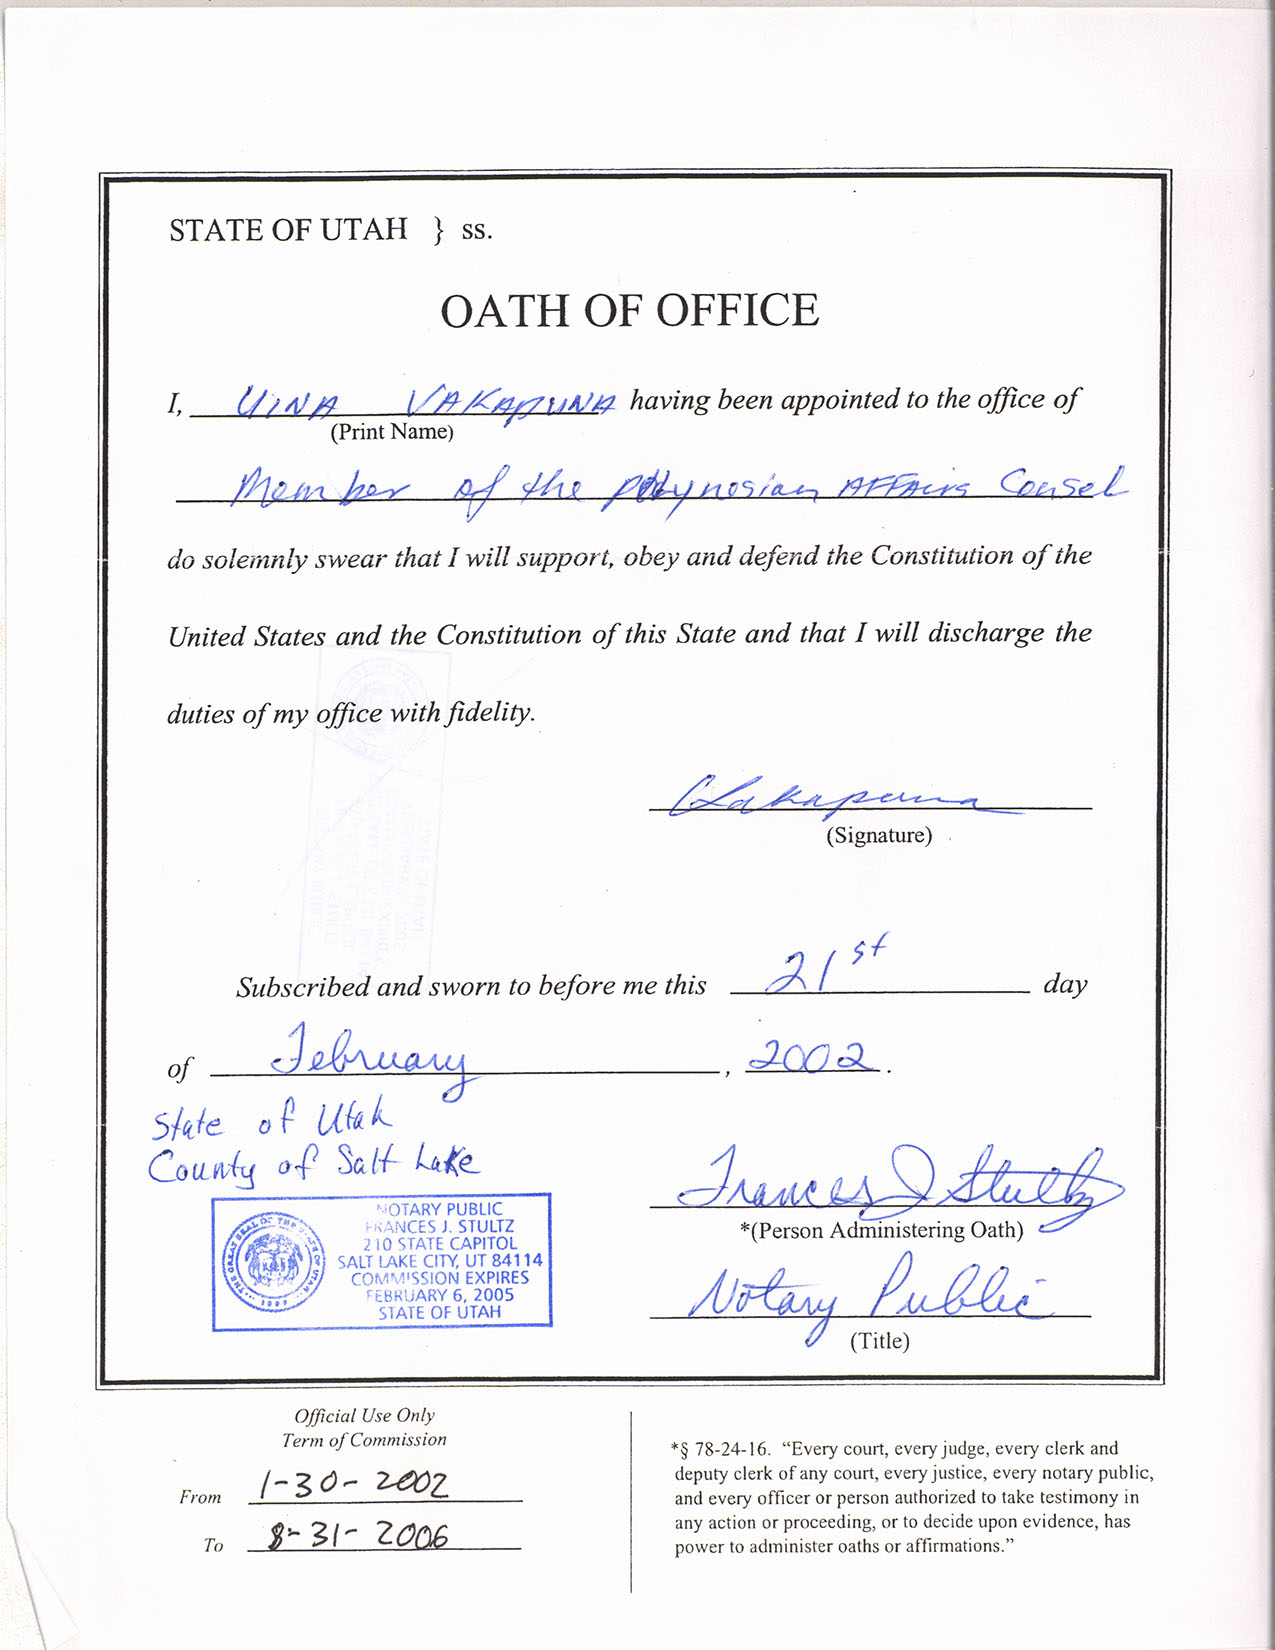 STATE OF UTAH } ss.
OATH OF OFFICE
I, UINA VAKAPUNA having been appointed to the office of
(Print Name)
Member of the Polynesian AFFAirs Consel
do solemnly swear that I will support, obey and defend the Constitution of the
United States and the Constitution of this State and that I will discharge the
duties of my office with fidelity.
(Signature)
Subscribed and sworn to before me this 21st day
of February, 2002.
State of Utah
County of Salt Lake
NOTARY PUBLIC
FRANCES J. STULTZ
210 STATE CAPITOL
SALT LAKE CITY, UT 84114
COMMISSION EXPIRES
FEBRUARY 6, 2005
STATE OF UTAH
THE GREAT SEAL OF THE STATE OF UTAH
Frances J Stultz
*(Person Administering Oath)
Notary Public
(Title)
Official Use Only
Term of Commission
From 1-30-2002
To 8-31-2006
*§ 78-24-16. “Every court, every judge, every clerk and
deputy clerk of any court, every justice, every notary public,
and every officer or person authorized to take testimony in
any action or proceeding, or to decide upon evidence, has
power to administer oaths or affirmations.”